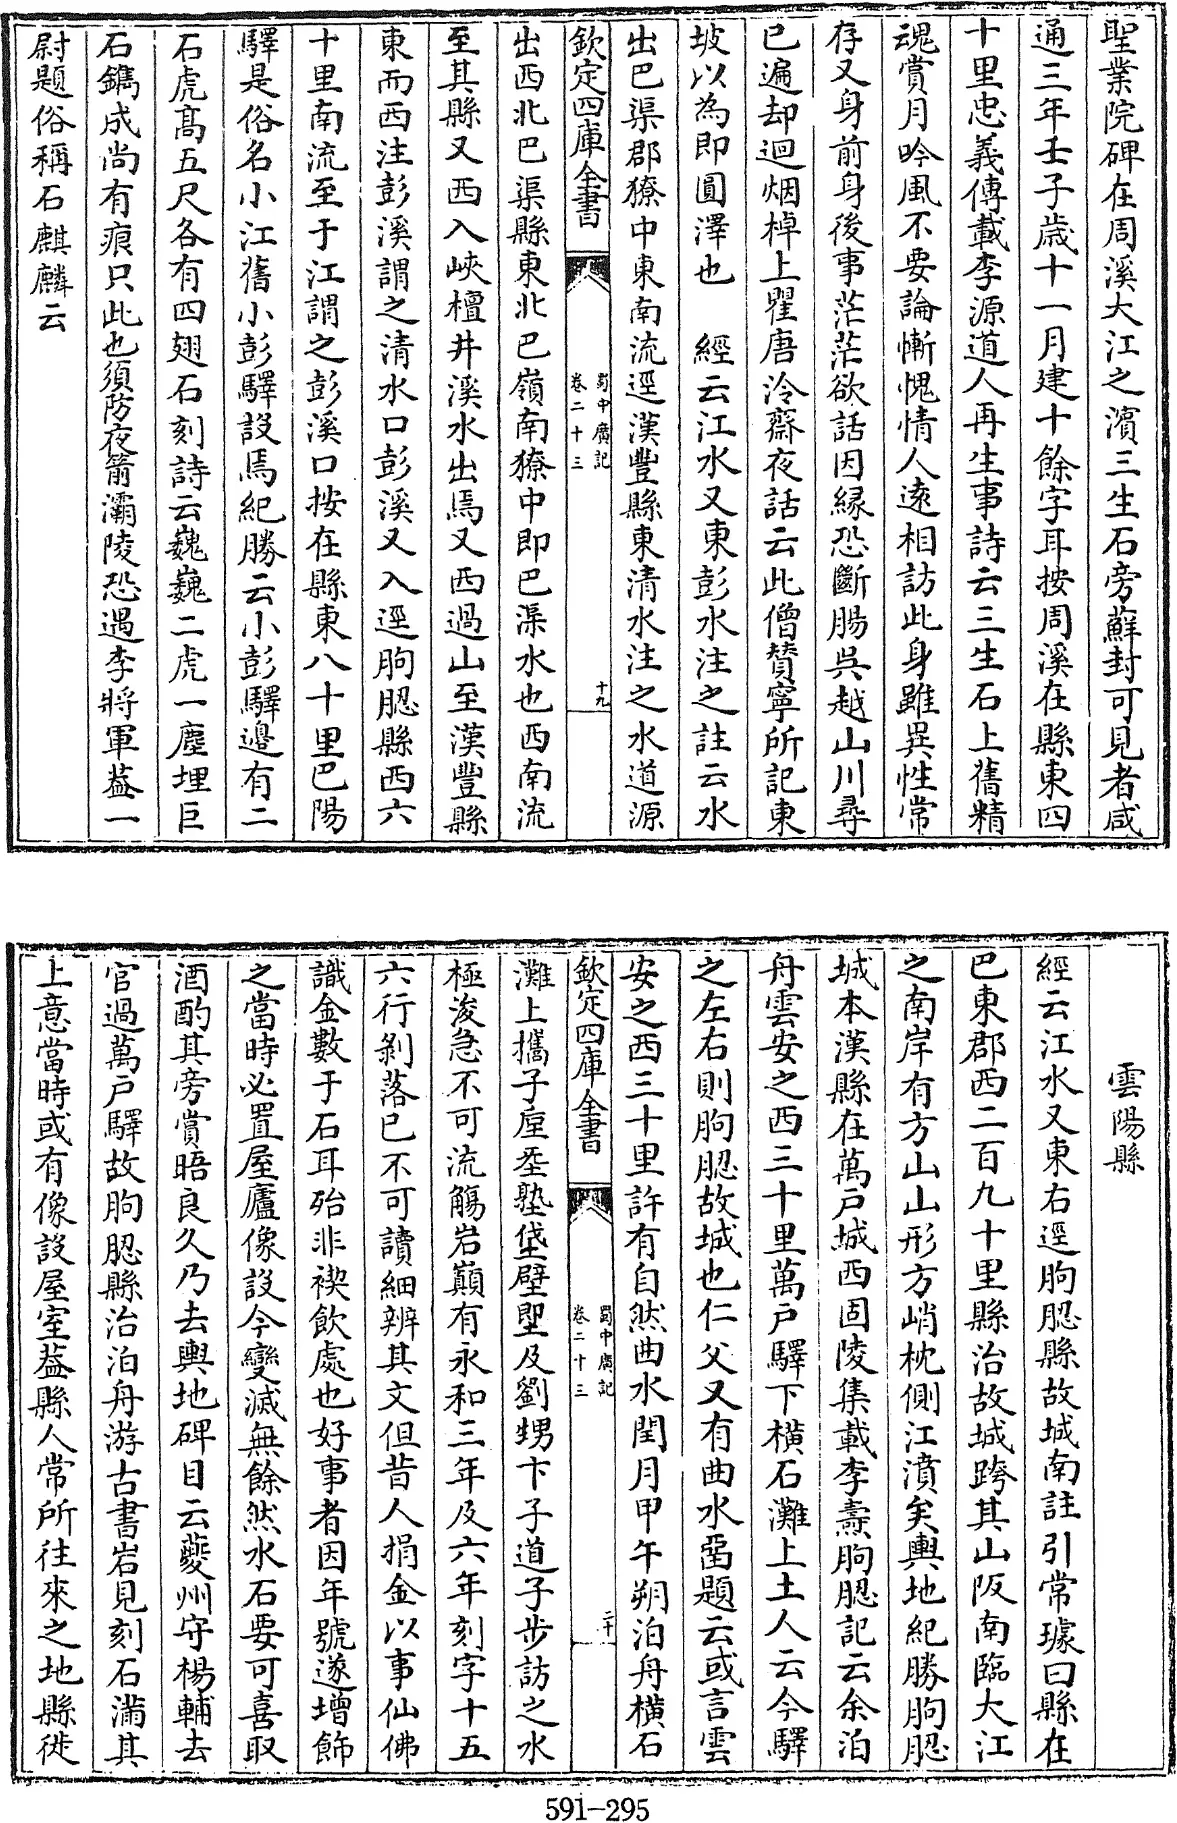 聖業院碑在周溪大江之濱三生石旁蘚封可見者咸
通三年壬子歳十一月建十餘字耳按周溪在縣東四
十里忠義傳載李源道人再生事詩云三生石上舊精
魂賞月吟風不要論慚愧情人逺相訪此身雖異性常
存又身前身後事茫茫欲話因縁恐斷腸呉越山川尋
已遍却迴烟棹上瞿唐泠齋夜話云此僧賛寧所記東
坡以為即圓澤也　經云江水又東彭水注之註云水
出巴渠郡獠中東南流逕漢豐縣東清水注之水道源
欽定四庫全書
蜀中廣記
卷二十三
十九
出西北巴渠縣東北巴嶺南獠中即巴渠水也西南流
至其縣又西入峽檀井溪水出焉又西過山至漢豐縣
東而西注彭溪謂之清水口彭溪又入逕朐䏰縣西六
十里南流至于江謂之彭溪口按在縣東八十里巴陽
驛是俗名小江舊小彭驛設焉紀勝云小彭驛邉有二
石虎髙五尺各有四翅石刻詩云巍巍二虎一塵埋巨
石鐫成尚有痕只此也須防夜箭灞陵恐遇李將軍葢一
尉題俗稱石麒麟云
雲陽縣
經云江水又東右逕朐䏰縣故城南註引常璩曰縣在
巴東郡西二百九十里縣治故城跨其山阪南臨大江
之南岸有方山山形方峭枕側江濆矣輿地紀勝朐䏰
城本漢縣在萬戸城西固陵集載李燾朐䏰記云余泊
舟雲安之西三十里萬戸驛下横石灘上土人云今驛
之左右則朐䏰故城也仁父又有曲水留題云或言雲
安之西三十里許有自然曲水閏月甲午朔泊舟横石
欽定四庫全書
蜀中廣記
卷二十三
二十
灘上攜子垕壆塾垡壁堲及劉甥卞子道子步訪之水
極浚急不可流觴岩巔有永和三年及六年刻字十五
六行剝落已不可讀細辨其文但昔人捐金以事仙佛
識金數于石耳殆非禊飲處也好事者因年號遂增飾
之當時必置屋廬像設今變滅無餘然水石要可喜取
酒酌其旁賞晤良久乃去輿地碑目云夔州守楊輔去
官過萬戸驛故朐䏰縣治泊舟游古書岩見刻石滿其
上意當時或有像設屋室葢縣人常所往來之地縣徙
591-295